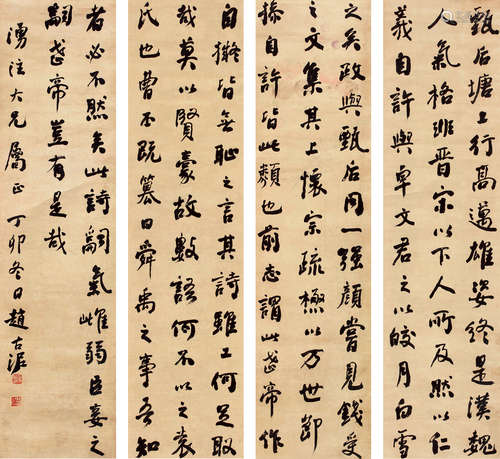 甄后塘上行高邁雄姿終是漢魏
人氣格非晉宋以下人所及然以仁
義自許與卓文君之以皎月白雪
自擬皆無恥之言其詩雖工何足取
哉莫以賢豪故數語何不以之袁
氏也曹丕既篡曰舜禹之事吾知
之矣政與甄后同一強顏嘗見錢受
之文集其上懷宗疏極以万世郅
隆自許皆此類也前志謂此武帝作
者必不然矣此詩詞氣雌弱臣妾之
詞武帝豈有是哉
湧注大兄屬正丁卯冬日趙古泥